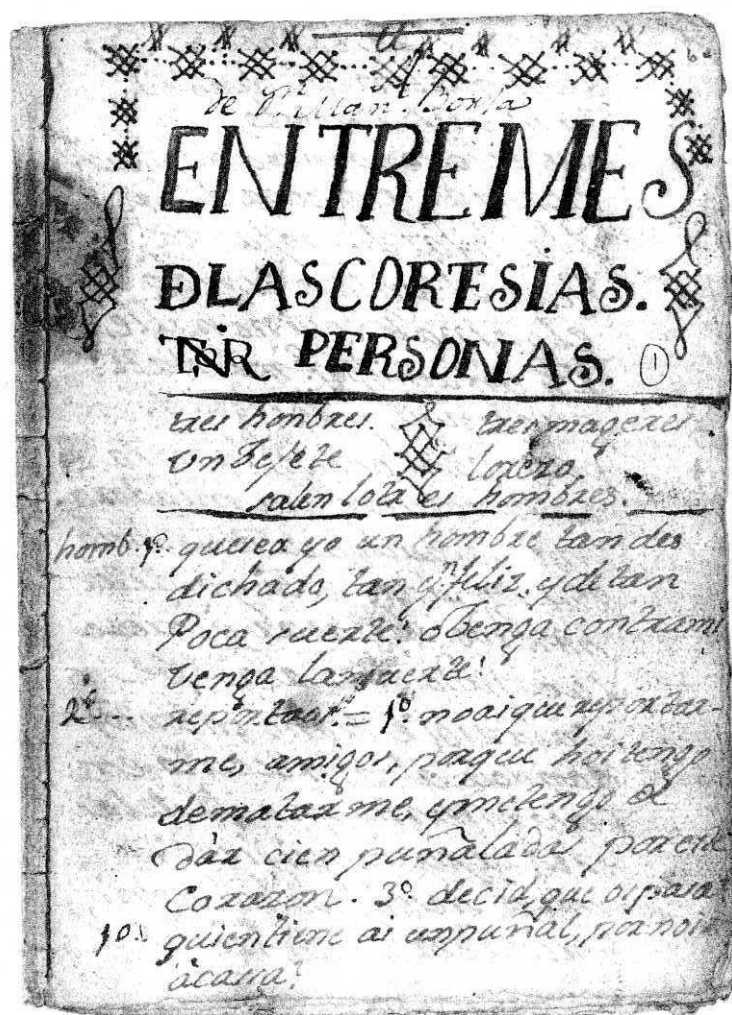 de Borja
ENTREMES
DLASCORESIAS.
PERSONAS. 1
tres hombres. tres mugeres.
Un vejete lorezo,
salen los tres hombres.
homb. 1º. quesea yo un hombre tan des
dichado, tan ynfeliz, y de tan
Poca suerte! o venga contrami
venga lamuerte!
2º... reportaos. = 1º. noai que reportar-
me, amigos, porque hoi tengo
dematarme, y me tengo de
dar cien puñaladas por este
Corazon. 3º. decid, que os pasa?
1º. quien tiene ai unpuñal, por
acasa?